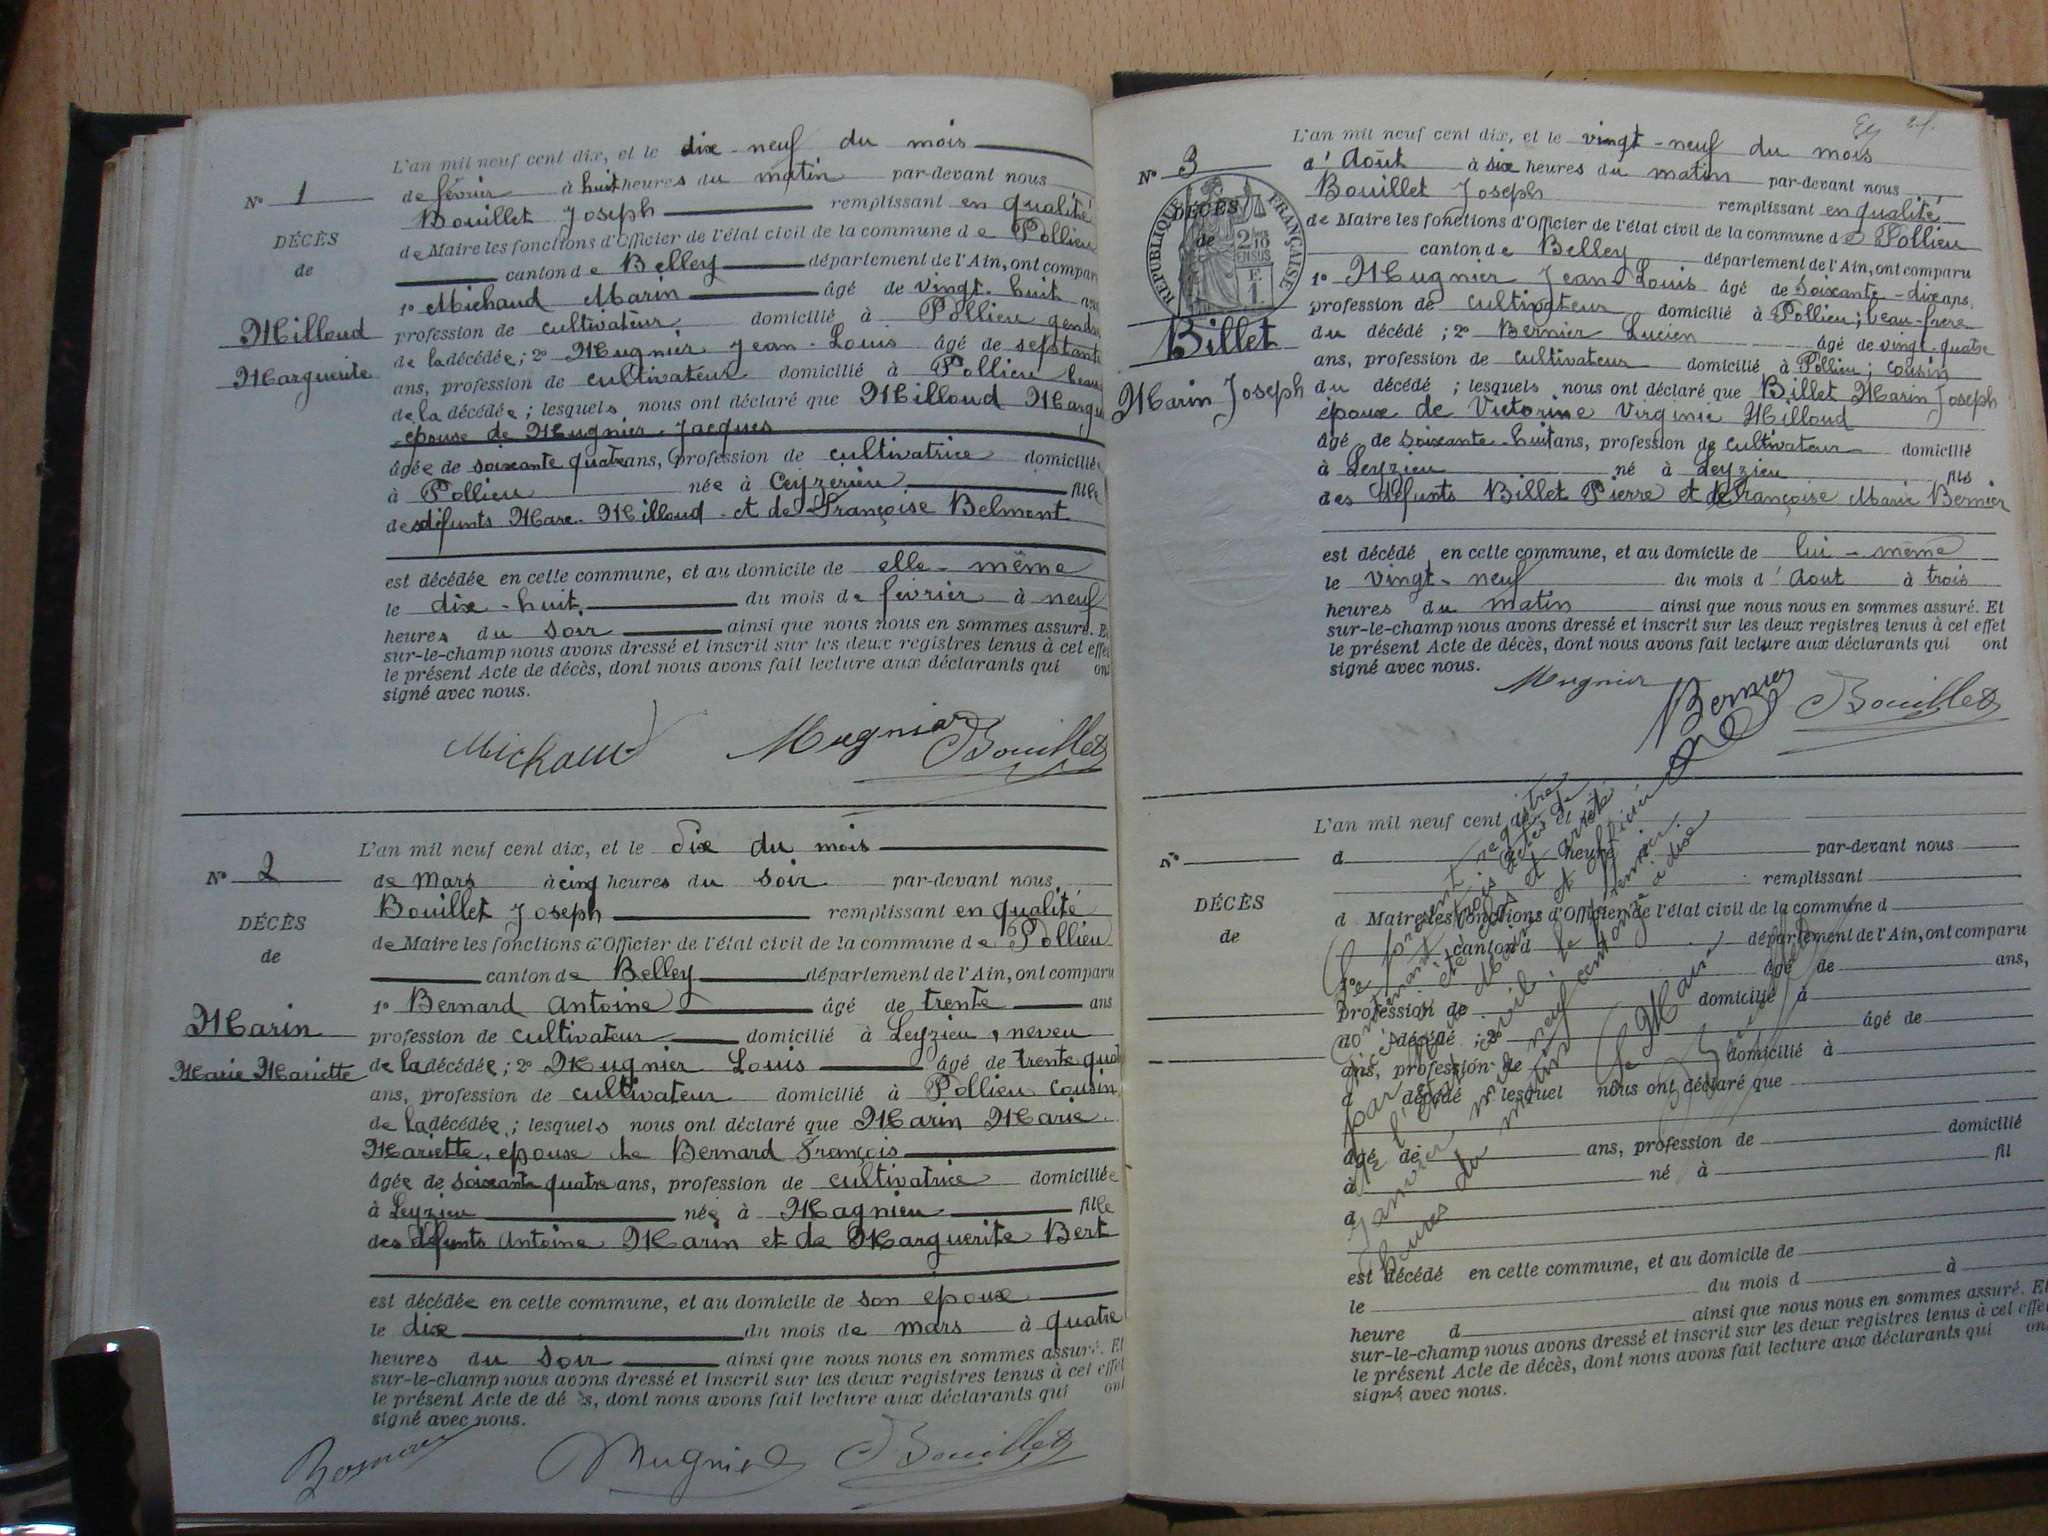 L'an mil neuf cent dix, et le dix-neuf du mois
N° 1
de février à huit heures du matin par-devant nous
Bouillet Joseph remplissant en qualité
DÉCÈS
de Maire les fonctions d'Officier de l'état civil de la commune de Pollieu
de
canton de Belley département de l'Ain, ont compar
1° Michaud Marin âgé de vingt-huit ans
Milloud
profession de cultivateur domicilié à Pollieu gendre
de la décédée; 2° Mugnier Jean-Louis âgé de septante
Marguerite
ans, profession de cultivateur domicilié à Pollieu beau
de la décédée; lesquels nous ont déclaré que Milloud Margu
épouse de Mugnier Jacques
âgée de soixante quatre ans, profession de cultivatrice domiciliée
à Pollieu née à Ceyzérieu fille
des défunts Marc Milloud et de Françoise Belmont
est décédée en cette commune, et au domicile de elle-même
le dix-huit du mois de février à neuf
heures du soir ainsi que nous nous en sommes assuré. Et
sur-le-champ nous avons dressé et inscrit sur les deux registres tenus à cet effet
le présent Acte de décès, dont nous avons fait lecture aux déclarants qui ont
signé avec nous.
Michaud Mugnier Bouillet
L'an mil neuf cent dix, et le dix du mois
N° 2
de Mars à cinq heures du soir par-devant nous
Bouillet Joseph remplissant en qualité
DÉCÈS
de Maire les fonctions d'Officier de l'état civil de la commune de Pollieu
de
canton de Belley département de l'Ain, ont comparu
1° Bernard Antoine âgé de trente ans
Marin
profession de cultivateur domicilié à Leyzieu, neveu
Marie Mariette
de la décédée; 2° Mugnier Louis âgé de trente quat
ans, profession de cultivateur domicilié à Pollieu cousin
de la décédée; lesquels nous ont déclaré que Marin Marie
Mariette, épouse de Bernard François
âgée de soixante quatre ans, profession de cultivatrice domiciliée
à Leyzieu née à Magnieu fille
des défunts Antoine Marin et de Marguerite Bert
est décédée en cette commune, et au domicile de son epoux
le dix du mois de mars à quatre
heures du soir ainsi que nous nous en sommes assuré. Et
sur-le-champ nous avons dressé et inscrit sur les deux registres tenus à cet effet
le présent Acte de dé ès, dont nous avons fait lecture aux déclarants qui ont
signé avec nous.
Bernard Mugnier Bouillet
L'an mil neuf cent dix, et le vingt-neuf du mois
N° 3
d'Août à six heures du matin par-devant nous
Bouillet Joseph remplissant en qualité
DÉCÈS
de
RÉPUBLIQUE FRANÇAISE
2/10 EN SUS
1 F.
de Maire les fonctions d'Officier de l'état civil de la commune de Pollieu
canton de Belley département de l'Ain, ont comparu
1° Mugnier Jean-Louis âgé de soixante-dix ans,
profession de cultivateur domicilié à Pollieu; beau-frère
Billet
du décédé; 2° Bernier Lucien âgé de vingt-quatre
ans, profession de cultivateur domicilié à Pollieu; cousin
Marin Joseph
du décédé; lesquels nous ont déclaré que Billet Marin Joseph
époux de Victorine Virginie Milloud
âgé de soixante-huit ans, profession de cultivateur domicilié
à Leyzieu né à Leyzieu fils
des défunts Billet Pierre et de Françoise Marie Bernier
est décédé en cette commune, et au domicile de lui-même
le vingt-neuf du mois d'Août à trois
heures du matin ainsi que nous nous en sommes assuré. Et
sur-le-champ nous avons dressé et inscrit sur les deux registres tenus à cet effet
le présent Acte de décès, dont nous avons fait lecture aux déclarants qui ont
signé avec nous.
Mugnier Bernier Bouillet
L'an mil neuf cent dix, et le
N°
d heure par-devant nous
remplissant
DÉCÈS
d Maire les fonctions d'Officier de l'état civil de la commune d
de
canton d département de l'Ain, ont comparu
1° âgé de ans,
profession de domicilié à
d décédé; 2° âgé de
ans, profession de domicilié à
d décédé lesquel nous ont déclaré que
âgé de ans, profession de domicilié
à né à fil
d
est décédé en cette commune, et au domicile de
le du mois d à
heure d ainsi que nous nous en sommes assuré. Et
sur-le-champ nous avons dressé et inscrit sur les deux registres tenus à cet effet
le présent Acte de décès, dont nous avons fait lecture aux déclarants qui ont
signé avec nous.
Le présent registre
contenant trois actes de
décès a été clos et arrêté
par nous Maire et officier
de l'état civil, le premier
Janvier mil neuf cent onze à dix
heures du matin
Le Maire
Bouillet